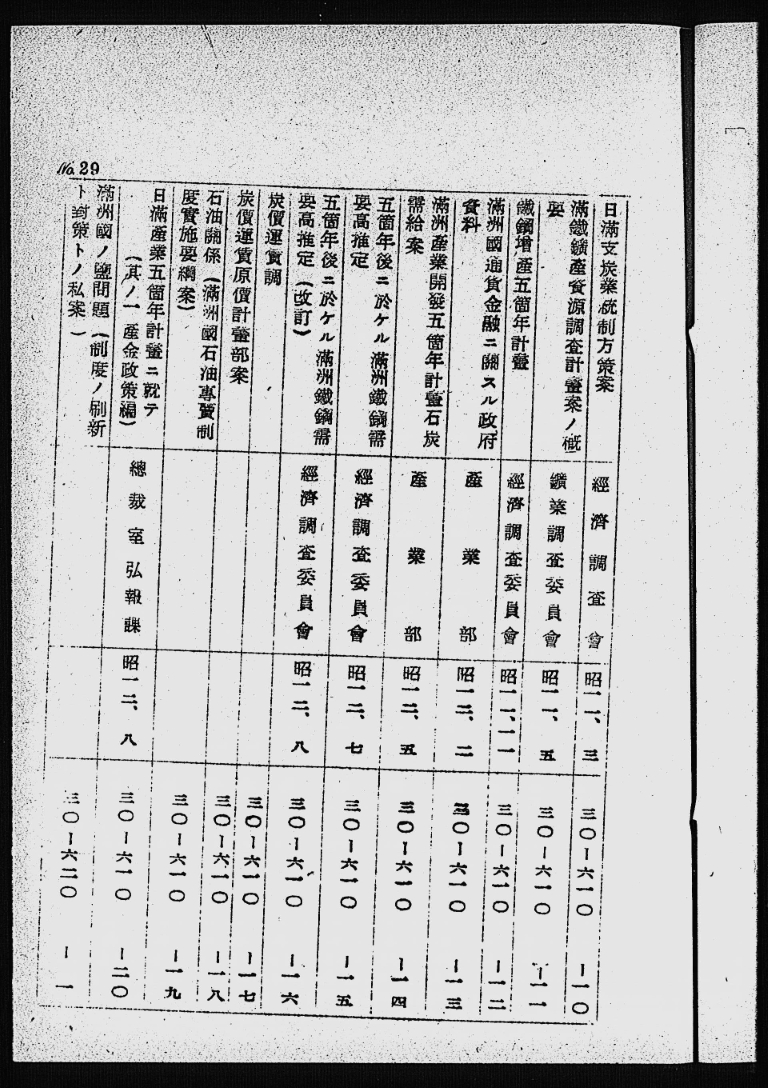 No. 29
日滿支炭業統制方策案
經濟調查會
昭一一、三
三〇ー六一〇
ー一〇
滿鐵鑛產資源調查計畫案ノ概
要
鑛業調查委員會
昭一一、五
三〇ー六一〇
ー一一
鐵鋼增產五箇年計畫
經濟調查委員會
昭一一、一一
三〇ー六一〇
ー一二
滿洲國通貨金融ニ關スル政府
資料
產業部
昭一二、二
三〇ー六一〇
ー一三
滿洲產業開發五箇年計畫石炭
需給案
產業部
昭一二、五
三〇ー六一〇
ー一四
五箇年後ニ於ケル滿洲鐵鋼需
要高推定
經濟調查委員會
昭一二、七
三〇ー六一〇
ー一五
五箇年後ニ於ケル滿洲鐵鋼需
要高推定(改訂)
經濟調查委員會
昭一二、八
三〇ー六一〇
ー一六
炭價運賃調
三〇ー六一〇
ー一七
炭價運賃原價計畫部案
三〇ー六一〇
ー一八
石油關係(滿洲國石油專賣制
度實施要綱案)
三〇ー六一〇
ー一九
日滿產業五箇年計畫ニ就テ
(其ノ一產金政策編)
總裁室弘報課
昭一二、八
三〇ー六一〇
ー二〇
滿洲國ノ鹽問題(制度ノ刷新
ト對策トノ私案)
三〇ー六二〇
ー一